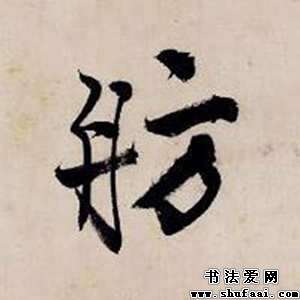 舫
书法爱网
www.shufaai.com